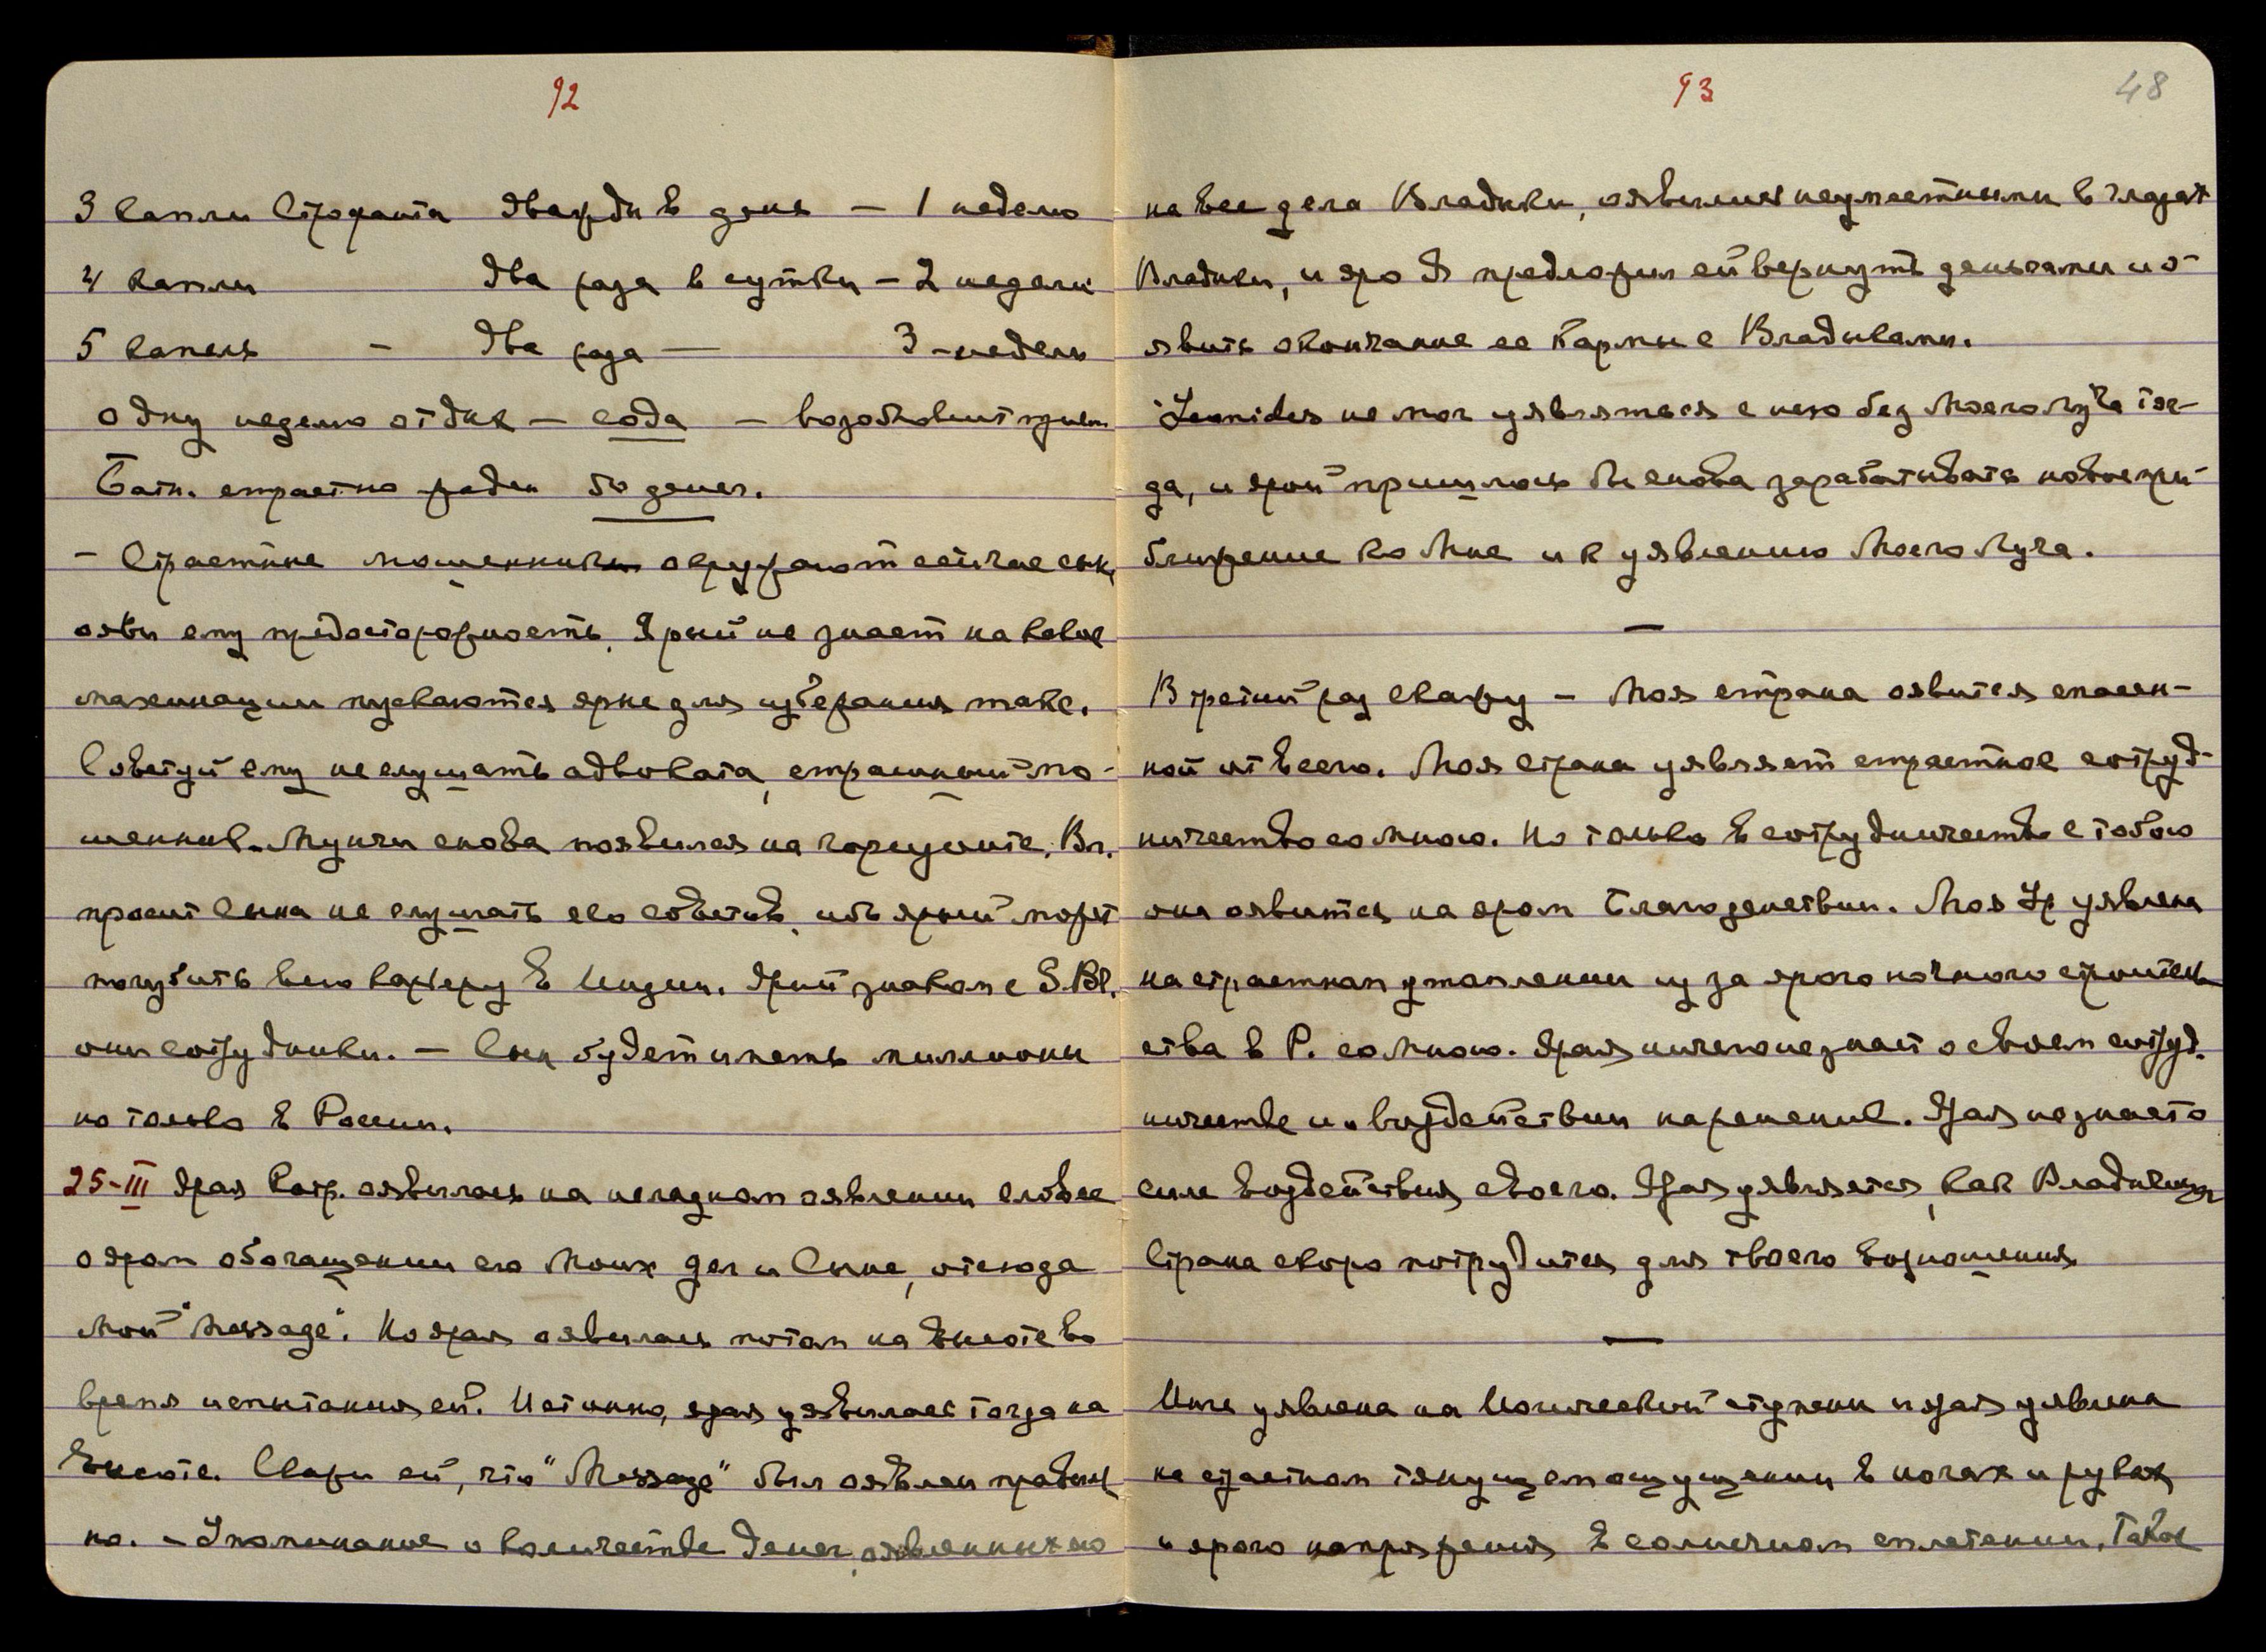 92
3 капли Строфанта дважды в день — 1 неделю
4 капли два раза в сутки — 2 недели
5 капель — два раза — 3 - недели
одну неделю отдых — сода — возобновит прием
Батн. страстно рада 50 денег.
— Страстные мошенники окружают сейчас сына,
яви ему предосторожность. Ярый не знает на какие
махинации пускаются ярые для избежания такс.
Советуй ему не слушать адвоката, страшный мо-
шенник. Мунчи снова появился на горизонте. Вл.
просит Сына не слушать его советов, ибо ярый может
погубить всю карьеру в Индии. Ярый знаком с
они сотрудники. — Сын будет иметь миллионы
но только в России.
25-III Ярая Катр. оявилась на неладном оявлении с
о яром обогащении его Моих дел и Сына, отсюда
Мой "Message". Но ярая оявилась потом на высоте во
время испытания ей. Истинно, ярая уявилась тогда на
высоте. Скажи ей, что "Message" был оявлен правиль
но. — Упоминание о количестве денег, оявленных ею
93 48
на все дела Владыки, оявились неуместными в глазах
Владыки, и яро Я предложил ей вернуть деньгами и о-
явить окончание ее Кармы с Владыками.
Leonides не мог уявляться с нею без Моего Луча тог-
да, и ярой пришлось бы снова зарабатывать новое при-
ближение ко Мне и к уявлению Моего Луча.
—
В третий раз скажу — Моя страна оявится спасен-
ной от всего. Моя Страна уявляет страстное сотруд-
ничество со Мною. Но только в сотрудничестве с тобою
она оявится на яром благоденствии. Моя Ур. уявлена
на страстном утомлении из за ярого ночного строитель
ства в Р. со Мною. Ярая ничего не знает о своем сотруд.
ничестве и о воздействии на решения. Ярая не знает о
силе воздействия своего. Ярая уявляется, как Владычица
Страна скоро потрудится для твоего возношения
—
Ине уявлена на Йогической ступени и ярая уявлена
на страстном тянущем ощущении в ногах и руках
и ярого напряжения в солнечном сплетении. Такое